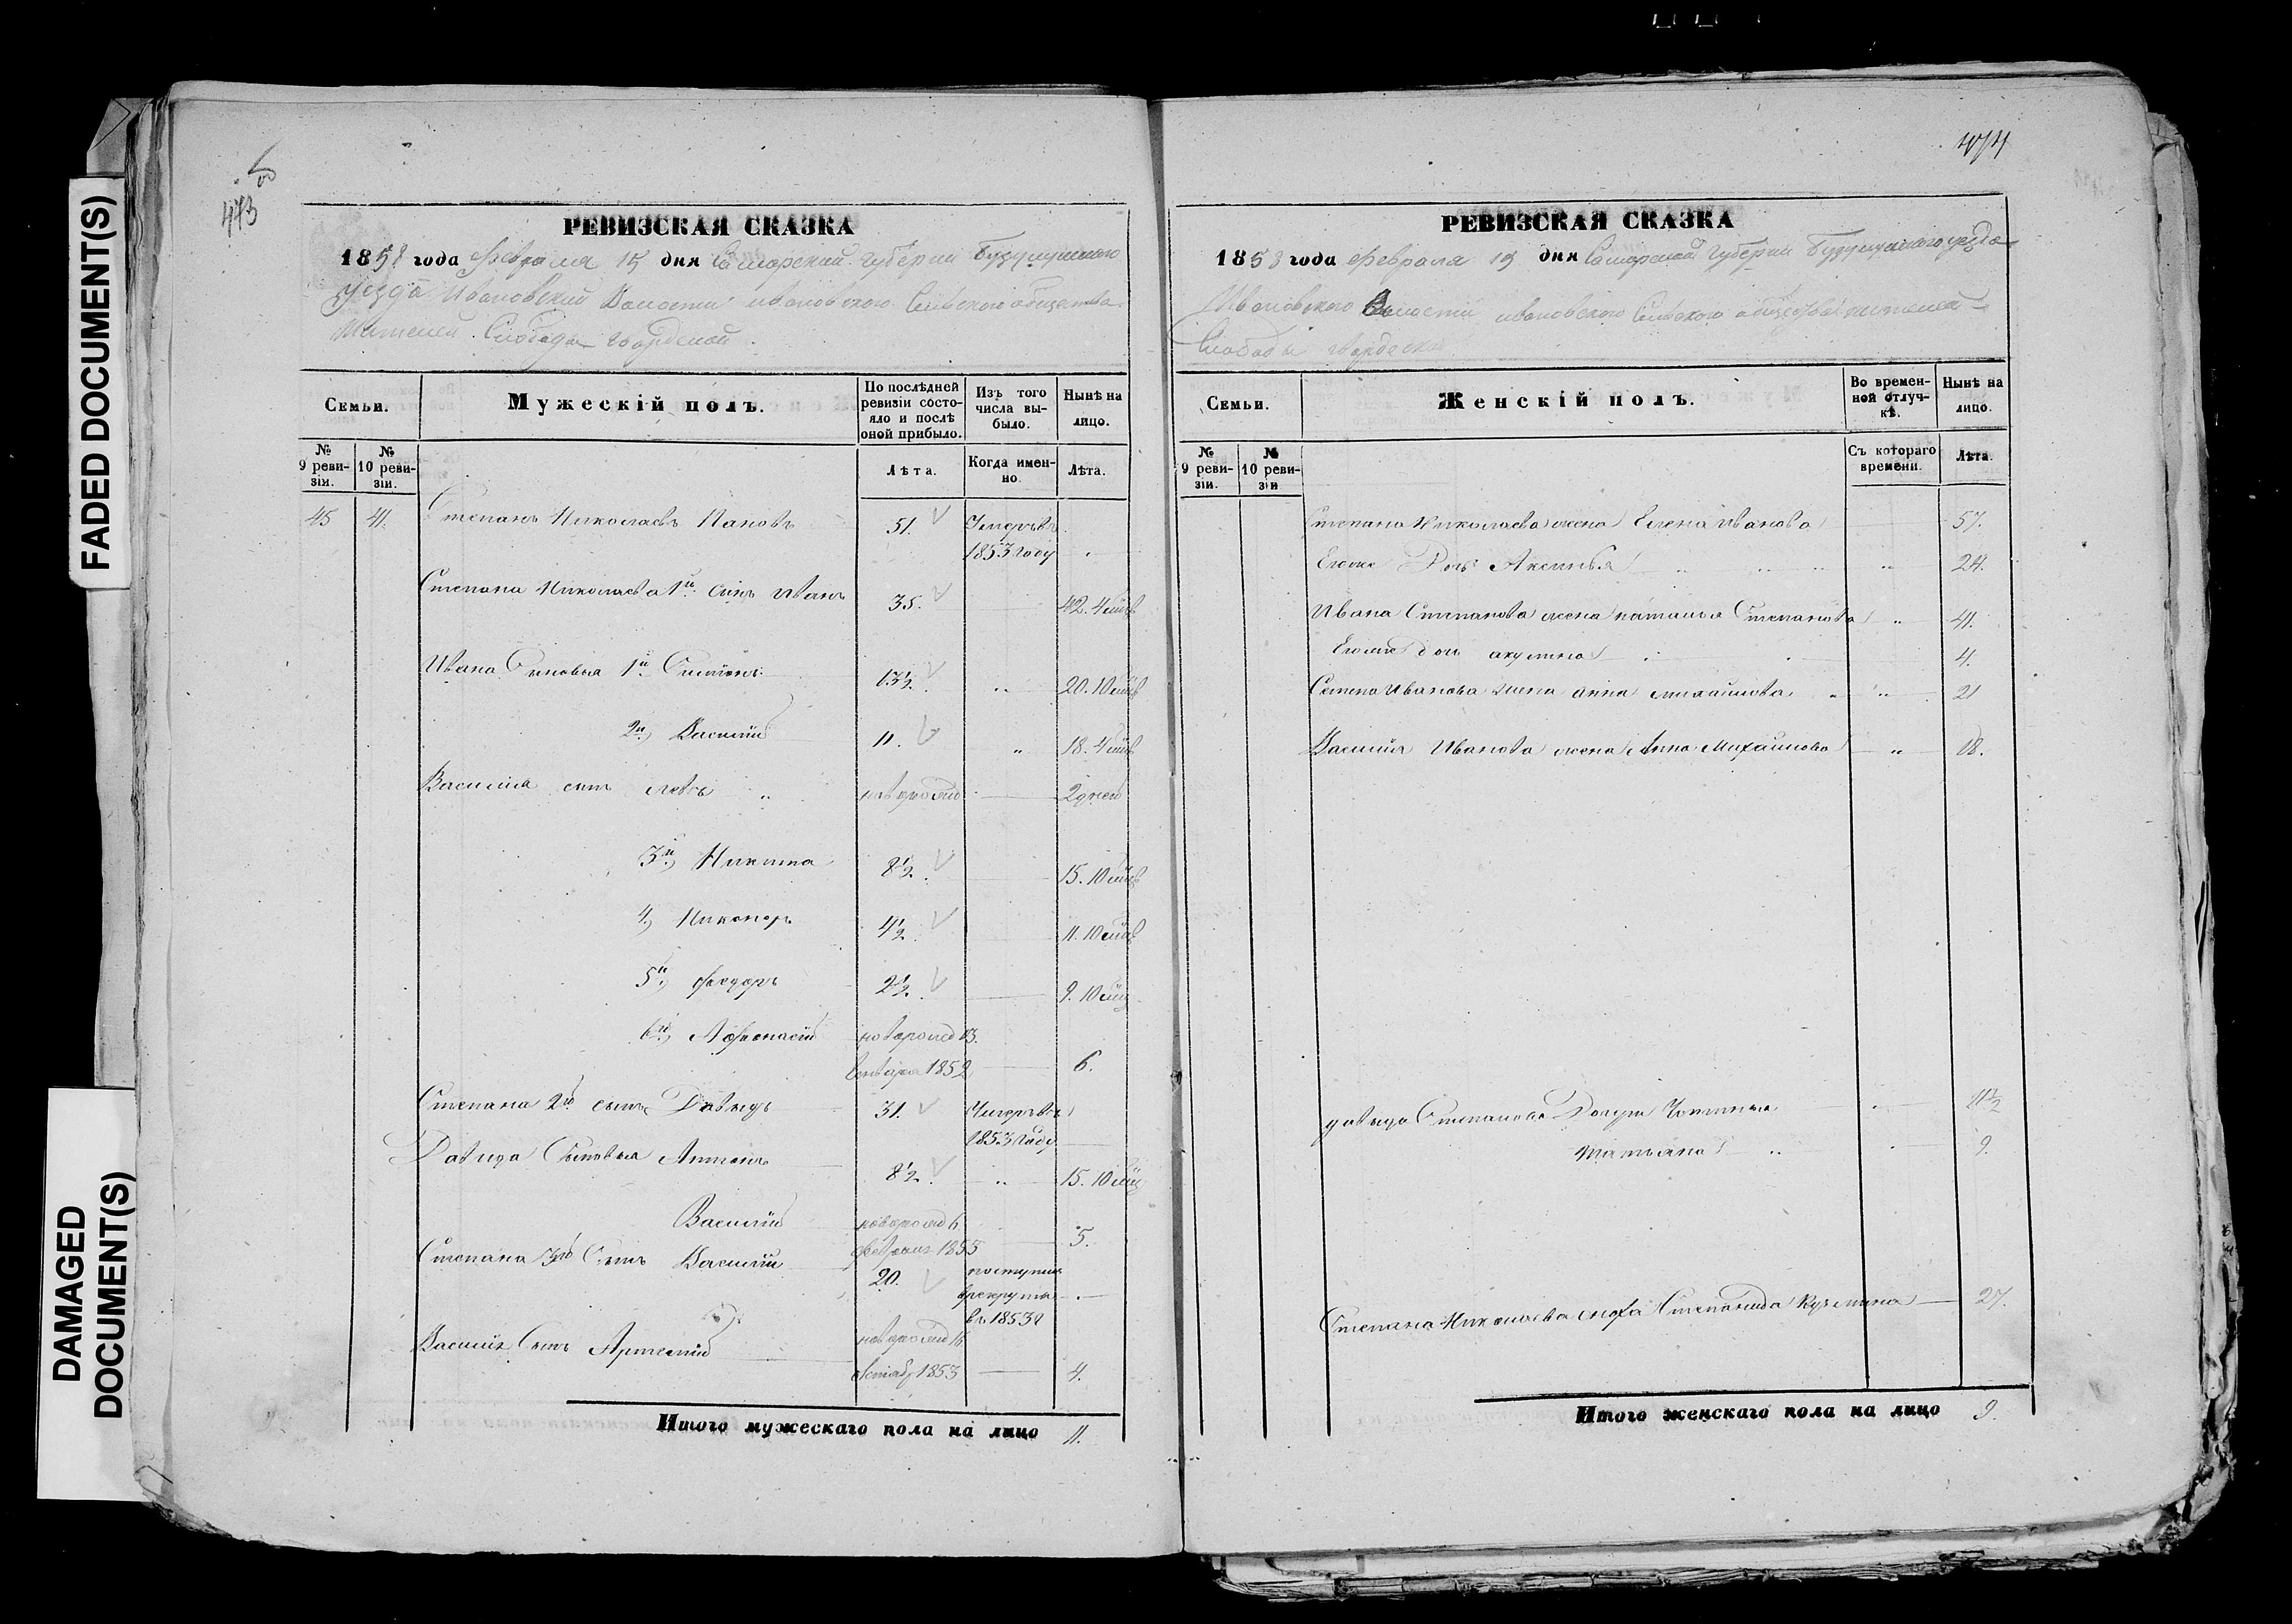 FADED DOCUMENT(S)
DAMAGED
DOCUMENT(S)
473
РЕВИЗСКАЯ СКАЗКА
1858 года февраля 15 дня Самарской Губернии Бузулукского
уезда Ивановской Волости ивановского Сельского общества
Жителей
Семьи.
Мужескій полъ.
По послѣдней
ревизіи состо-
яло и послѣ
оной прибыло.
Изъ того
числа вы-
было.
Нынѣ на
лицо.
№
9 реви-
зіи.
№
10 реви-
зіи.
Лѣта.
Когда имен-
но.
Лѣта.
45 41. Степанъ Николаевъ Пановъ 51. Умеръ въ
1853 году
Степана Николаева 1й сынъ Иванъ 35. 42. 4 мц
Ивана Сыновья 1й Симіонъ 13½ 20. 10 мц
2й Василій 11. 18. 4 мц
Василія сынъ новорожд 2 дней
3й Никита 8½ 15. 10 мц
4, Никоноръ 4½ 11. 10 мц
5й Федоръ 2½ 9. 10 мц
6й Афонасій новорожд
1852 6.
Степана 2й сынъ Давыдъ 31. Умеръ въ
1853 году
Давида Сыновья Антонъ 8½ 15. 10 мц
Василій новорожд 6
1855 5.
Степана 3й Сынъ Василій 20. поступил
в рекруты
въ 1853 г
Василія Сынъ Артемій новорожд 16
октяб 1853 4.
Итого мужескаго пола на лицо 11.
474
РЕВИЗСКАЯ СКАЗКА
1858 года февраля 15 дня Самарской Губернии Бузулукского уезда
Ивановского Волости ивановского Сельского общества жителей
Слободы
Семьи.
Женскій полъ.
Во времен-
ной отлуч-
кѣ.
Нынѣ на
лицо.
№
9 реви-
зіи.
№
10 реви-
зіи
Съ котораго
времени.
Лѣта.
Степана Николаева жена Елена Иванова 57.
Егоже Дочь Аксинья 24.
Ивана Степанова жена наталья Степанова 41.
Егоже дочь акулина 4.
Семена Иванова жена анна михайлова 21
Василія Иванова жена Анна Михайлова 18.
давыда Степанова Дочери 11½
Татьяна 9.
Степана Николаева сноха Степанида Кузмина 27.
Итого женскаго пола на лицо 9.